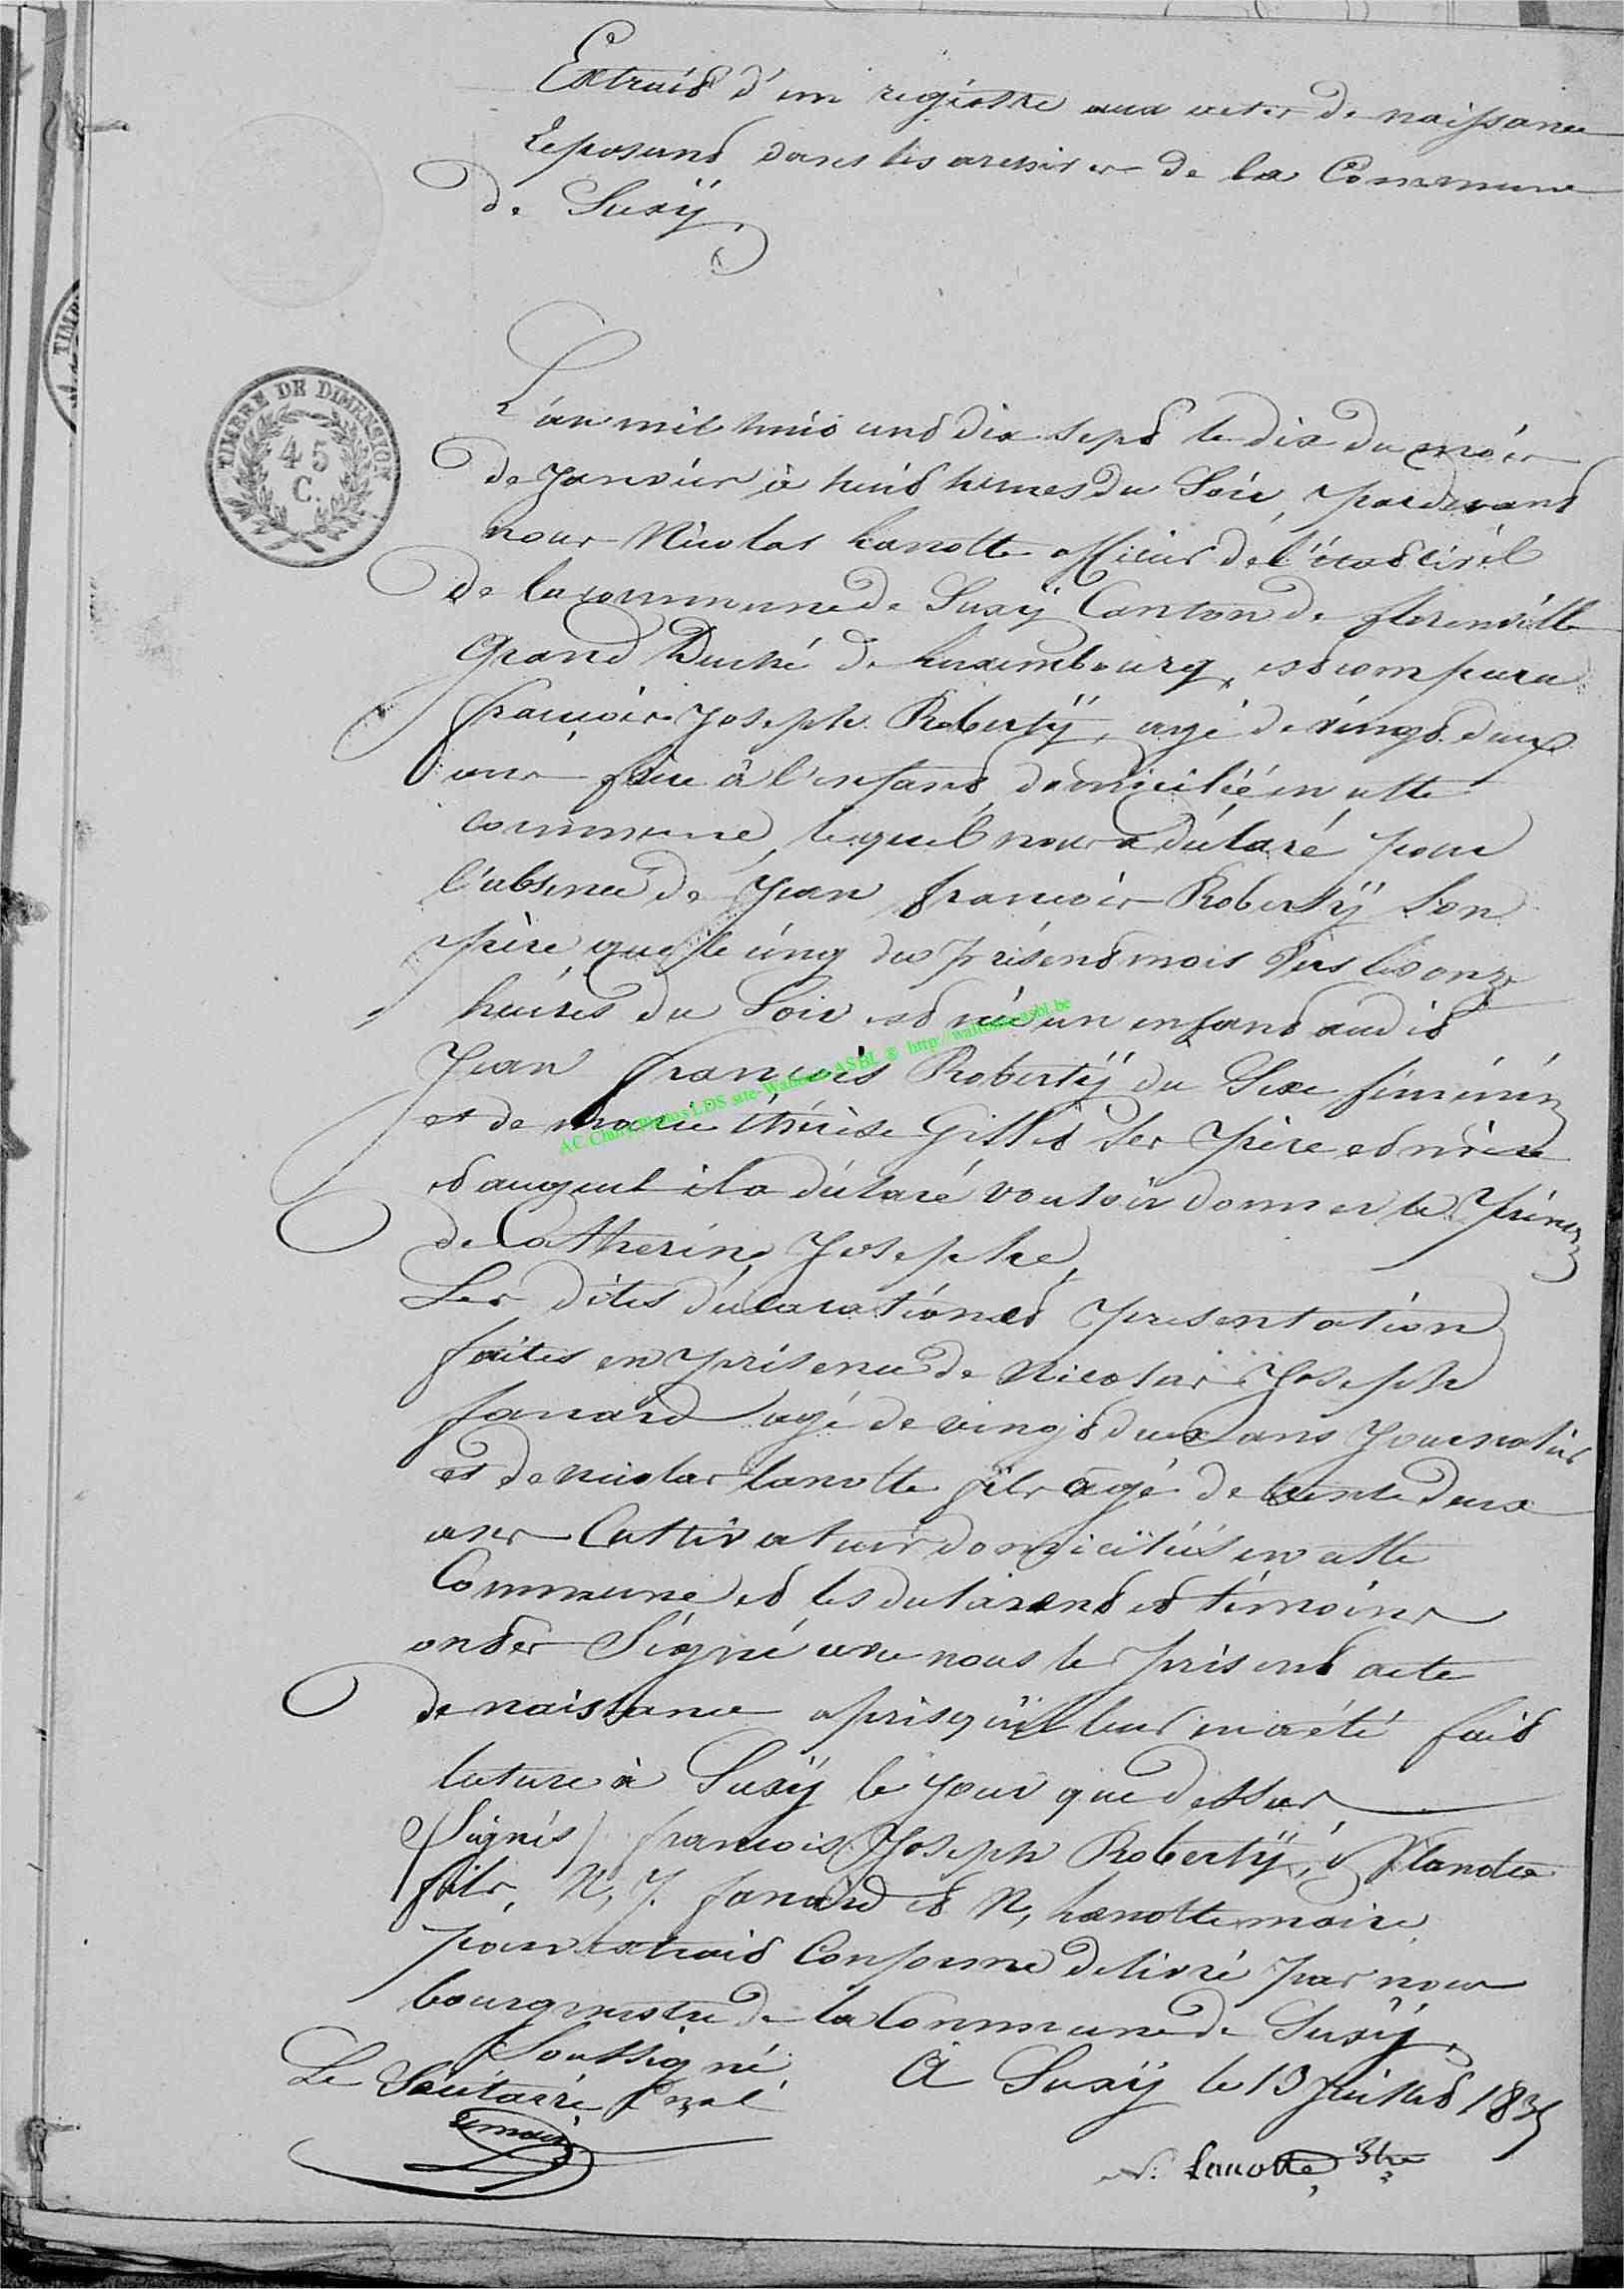 Extrait d'un régistre aux actes de naissance
Reposant dans les archives de la Commune
de Suxÿ
TIMBRE DE DIMENSION
45
C.
TIMB
L'an mil huit cent dix sept le dix du mois
de Janvier à huit heures du Soir, pardevant
nous Nicolas Lanotte officier de l'état civil
de la commune de Suxÿ Canton de florenville
Grand Duché de Luxembourg, est comparu
françois Joseph Robertÿ, agé de vingt deux
ans frère à l'enfant domicilié en cette
commune, lequel nous a déclaré pour
l'absence de Jean françois Robertÿ Son
père, que le cinq du présent mois vers les onze
heures du Soir est née un enfant audit
Jean françois Robertÿ du Sexe féminin
et de marie thérèse Gillet Ses père et mère
et auquel il a déclaré vouloir donner le prénom
de Catherine Josephe,
Les dites déclaration et présentation
faites en présence de Nicolas Joseph
fanard agé de vingt deux ans Journalier
et de nicolas lanotte fils agé de trente deux
ans Cultivateur domiciliés en cette
Commune et les déclarant et témoins
ont Signé avec nous le présent acte
de naissance après qu'il leur en a été fait
lecture à Suxÿ le jour que dessus
(Signés) françois Joseph Robertÿ, N lanotte
fils, N, J. fanard et N, Lanotte maire,
pour extrait Conforme délivré par nous
bourgmestre de la Commune de Suxÿ,
Soussigné,
Le Secrétaire
A Suxÿ le 13 Juillet 1835
N. Lanotte
AC Chiny Photos LDS site Wallonia ASBL ® http://wallonia-asbl.be